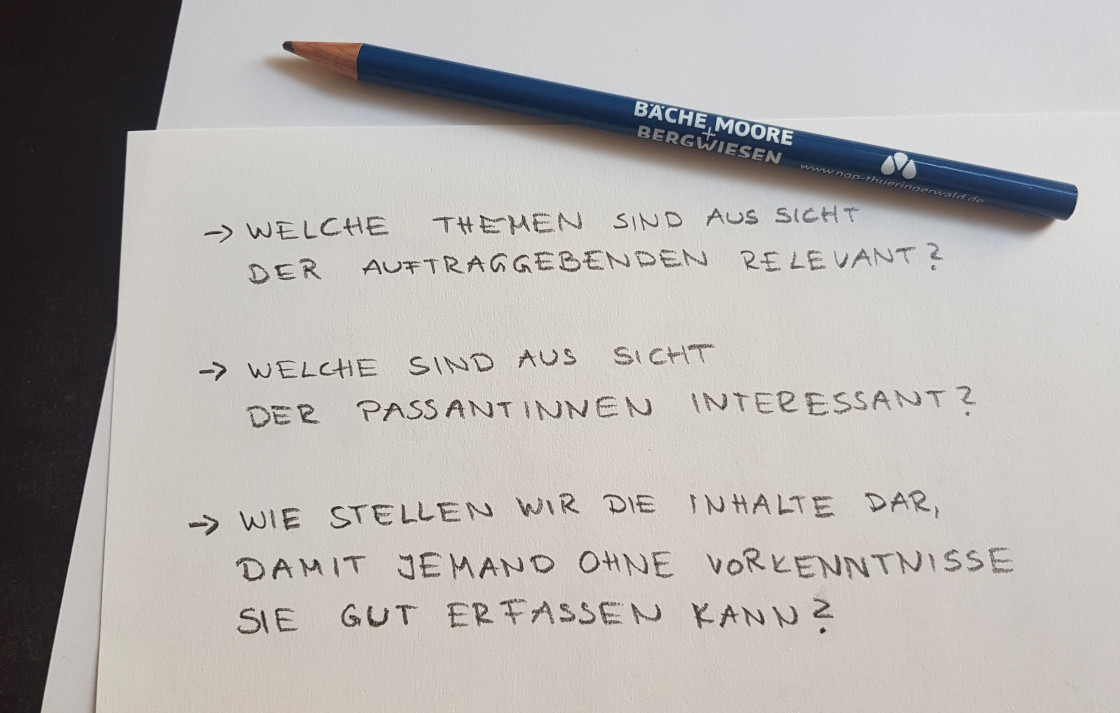 BÄCHE, MOORE
+
BERGWIESEN
www.ngp-thueringerwald.de
→ WELCHE THEMEN SIND AUS SICHT
DER AUFTRAGGEBENDEN RELEVANT?
→ WELCHE SIND AUS SICHT
DER PASSANTINNEN INTERESSANT?
→ WIE STELLEN WIR DIE INHALTE DAR,
DAMIT JEMAND OHNE VORKENNTNISSE
SIE GUT ERFASSEN KANN?